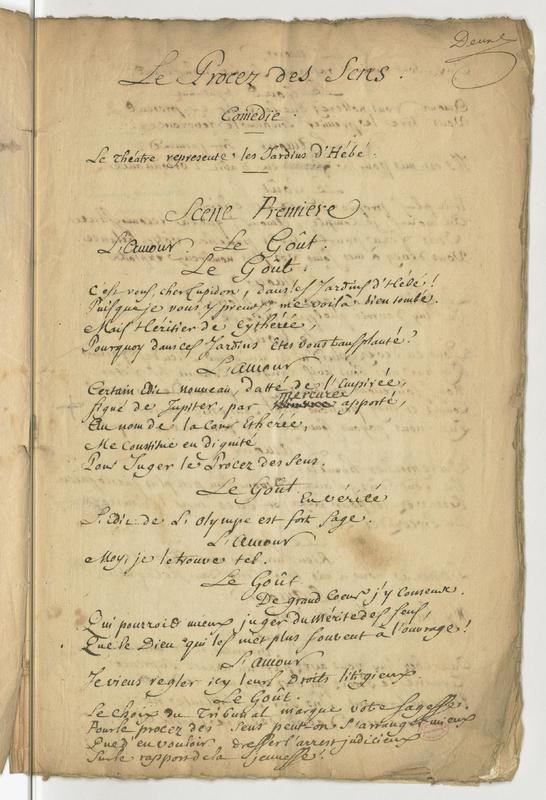 Le Procez des Sens.
Comedie.
Le théatre represente les Jardins d'Hébé.
Scene Premiere
L'amour. Le Goût.
Le Goût.
C'est vous cher Cupidon, dans les Jardins d'Hébé!
Puisque je vous y prens me voilà bien tombé.
Mais Héritier de Cythérée,
Pourquoy dans ces Jardins êtes vous transplanté?
L'amour
Certain Edit nouveau, datté de l'Empirée,
signé de Jupiter, par Mercure apporté,
Au nom de la Cour Ethérée,
Me constitue en dignité
Pour Juger le Procez des Sens.
Le Goût
En vérité
L'Edit de L'Olympe est fort sage.
L'amour
Moy, je le trouve tel.
Le Goût
De grand Coeur j'y Consens.
Qui pourroit mieux juger du Mérite des Sens,
Que le Dieu qui les met plus souvent à l'ouvrage!
L'amour
Je viens regler icy leurs droits litigieux
Le Goût.
Le choix du Tribunal marque votre sagesse.
Pour le procez des Sens peut-on s'arranger mieux
Que d'en vouloir dresser l'arrest judicieux
Sur le rapport de la jeunesse!